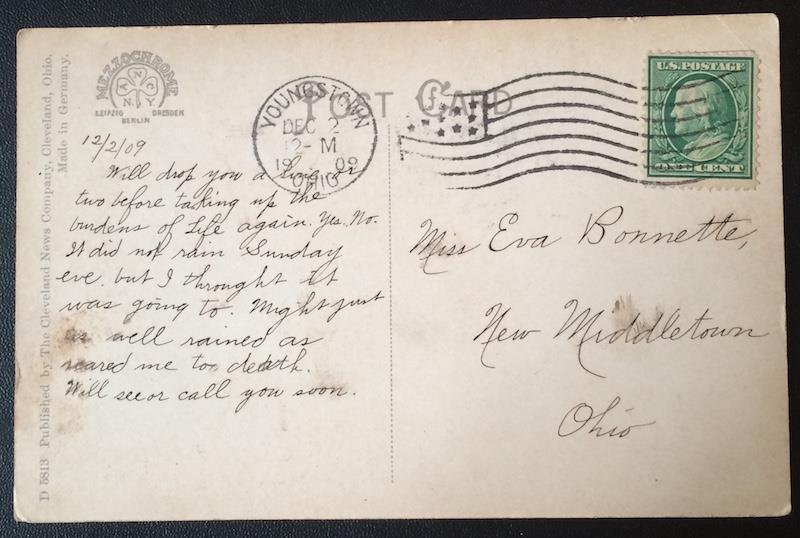 D 5813 Published by The Cleveland News Company, Cleveland, Ohio.
Made in Germany.
MEZZOCHROME
A N C
N.Y.
LEIPZIG DRESDEN
BERLIN
POST CARD
YOUNGSTOWN
DEC 2
12-M
1909
OHIO
U.S. POSTAGE
ONE CENT
12/2/09
Will drop you a line or
two before taking up the
burdens of Life again. Yes. No.
It did not rain Sunday
eve. but I throught it
was going to. Might just
as well rained as
scared me to death.
Will see or call you soon.
Miss Eva Bonnette,
New Middletown
Ohio